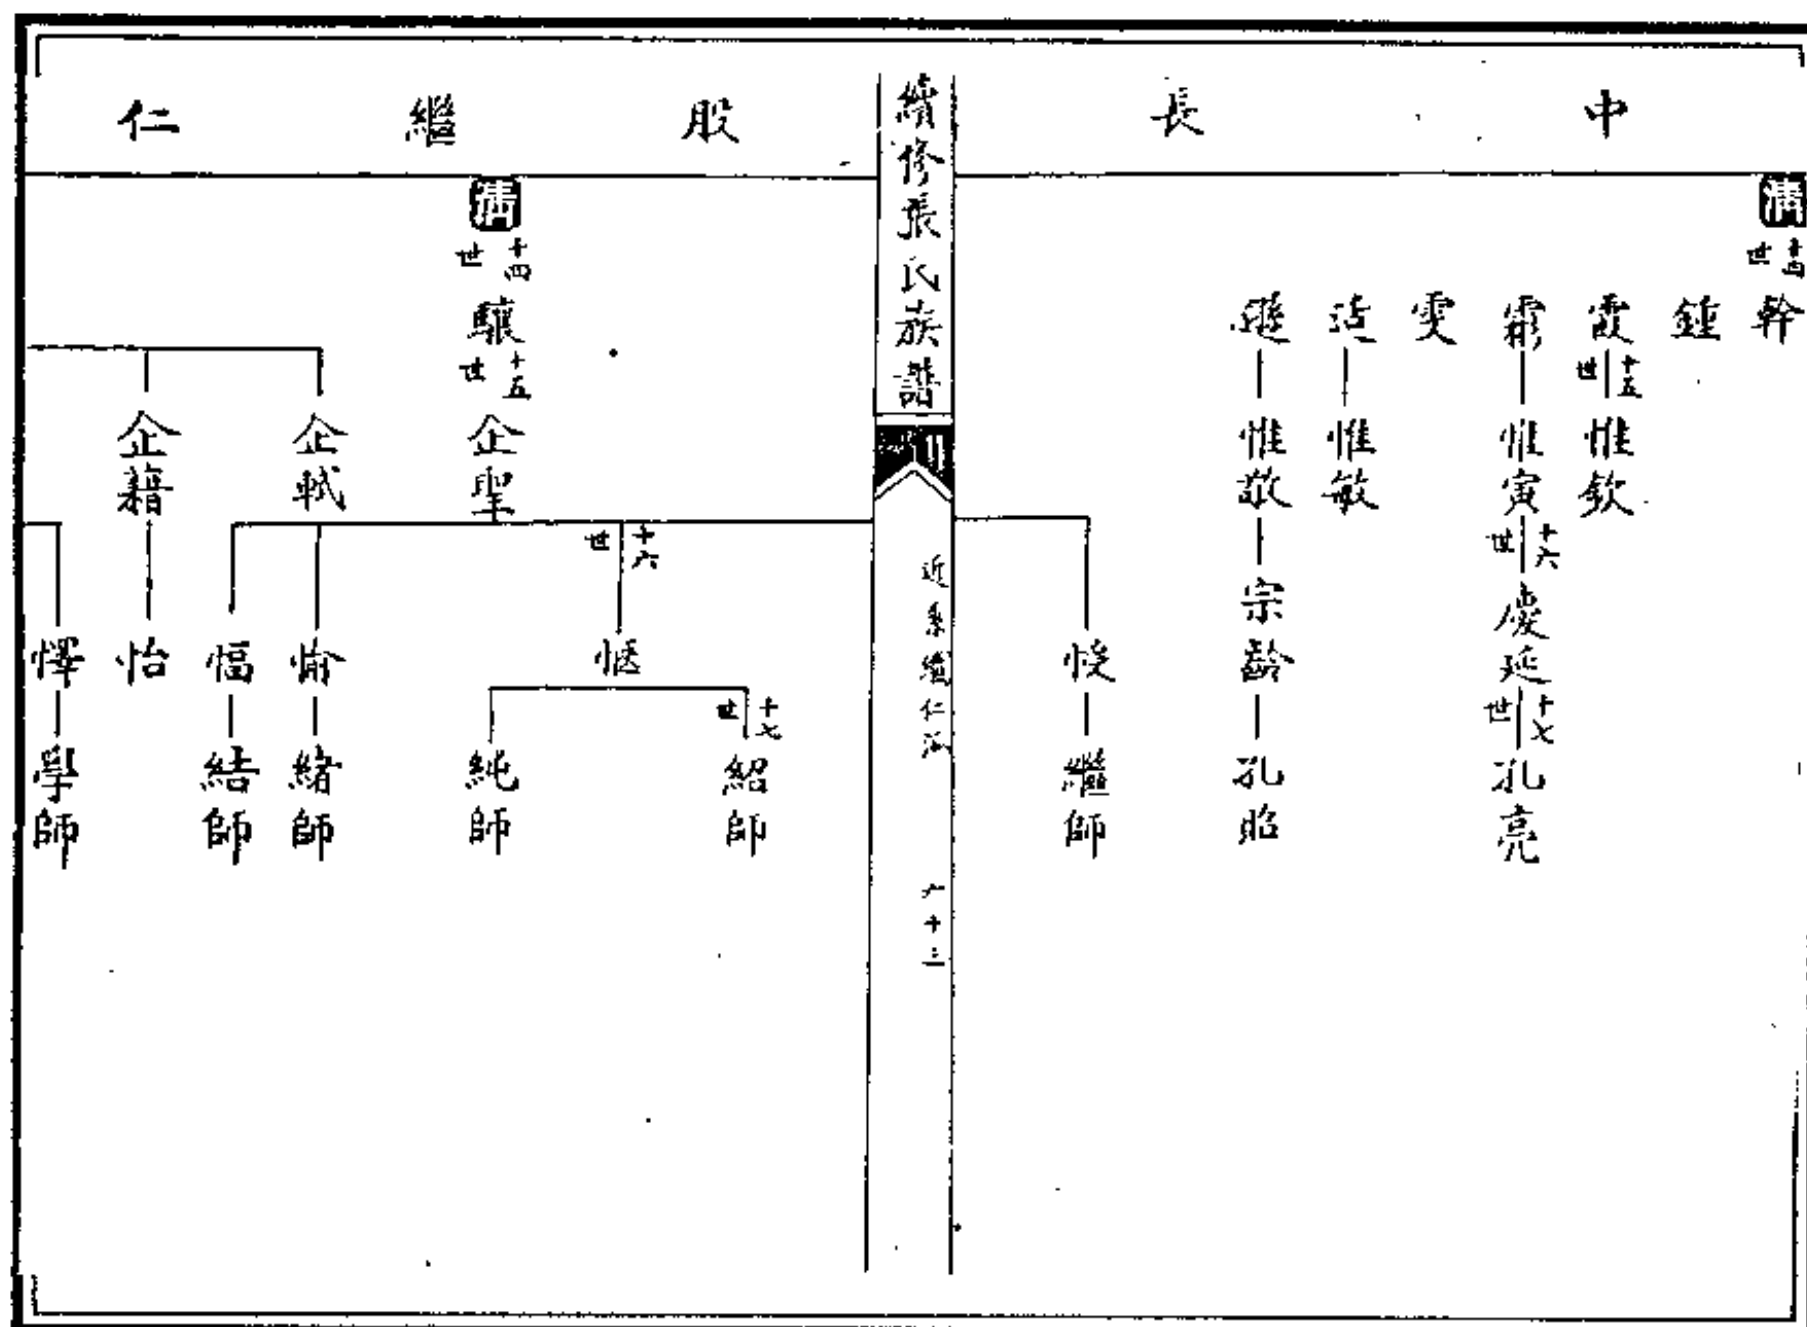 中長股繼仁
清
十四世
幹
鍾
霞
十五世
惟欽
霦
惟寅
十六世
慶延
十七世
孔亮
雯
适
惟敏
遜
惟敬
宗齡
孔昭
悛
繼師
續修張氏族譜
近系繼仁派
六十三
清
十四世
驤
十五世
企聖
十六世
愜
十七世
紹師
純師
愉
緒師
愊
結師
企軾
企藉
怡
懌
學師